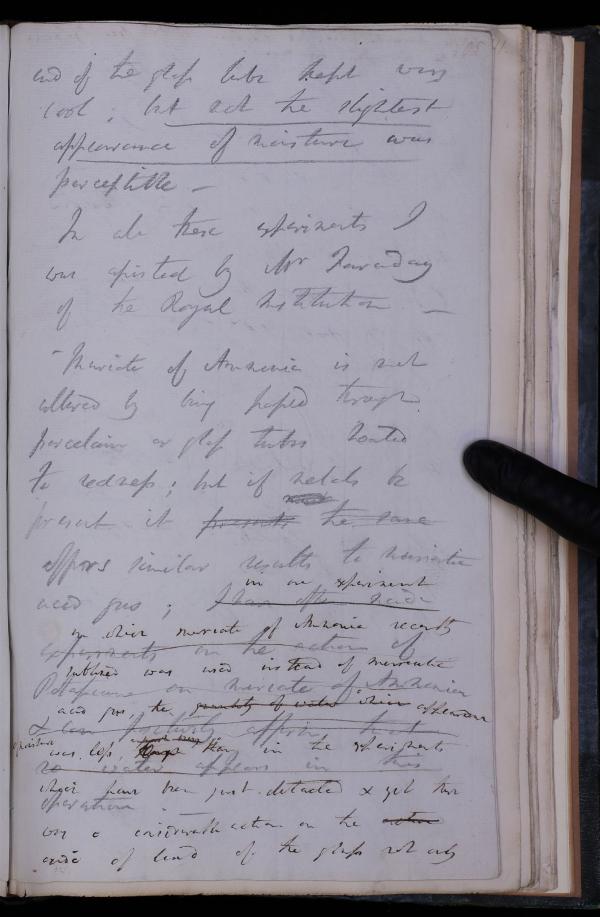 end of the glass tube kept very
cool; but not the slightest
appearance of moisture was
perceptible —
In all these experiments I
was assisted by Mr Faraday
of the Royal Institution —
Muriate of Ammonia is not
altered by being passed through
porcelain or glass tubes heated
to redness; but if metals be
present it presents the same
affords similar results to muriatic
in one experiment
acid gas; I have often made
in which muriate of Ammonia recently
experiments on the action of
sublimed was used instead of muriatic
Potassium on muriate of Ammonia
acid gas, the quantity of water which appeared
& can
was less, than in the experiments
no water appears in this
which have been just detailed & yet there
operation
was a considerable action on the action
oxide of lead of the glass not only